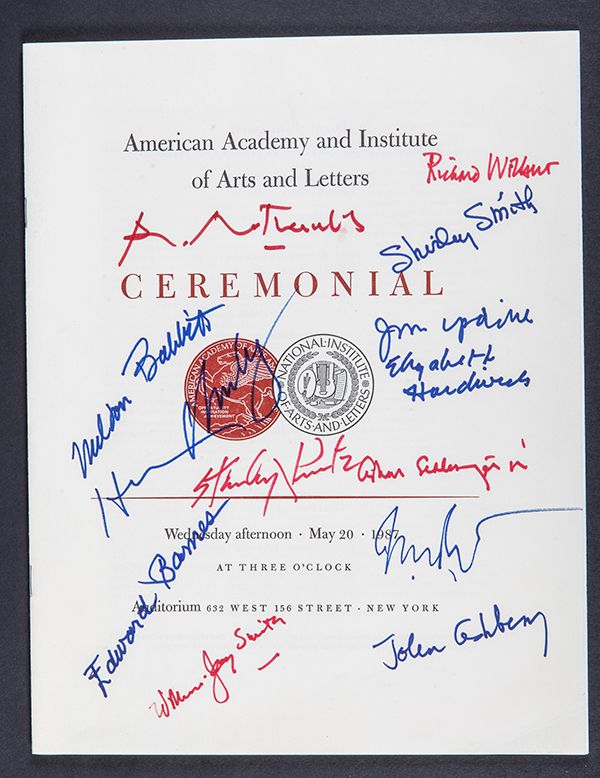 American Academy and Institute
of Arts and Letters
Richard Wilbur
Shirley Smith
CEREMONIAL
Milton Babbitt
John Updike
Elizabeth
Hardwick
AMERICAN ACADEMY OF ARTS AND
OPPORTUNITY
INSPIRATION
ACHIEVEMENT
NATIONAL·INSTITUTE
·OF·ARTS·AND·LETTERS·
Stanley Kunitz
Arthur Schlesinger jr
Wednesday afternoon · May 20 · 1987
AT THREE O'CLOCK
Edward Barnes
Auditorium 632 WEST 156 STREET · NEW YORK
William Jay Smith
John Ashbery